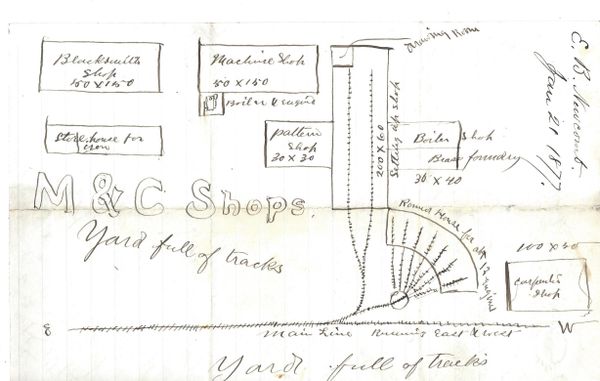 Drawing Room
E. B. Newcomb
Jan 21 1877.
Blacksmith
Shop
50 X 150
Machine Shop
50 X 150
Boiler & Engine
Store house for
iron
pattern
Shop
30 X 30
200 X 60
Setting up shop
Boiler Shop
Brass foundry
30 X 40
M & C Shops.
Round House for abt 12 engines
Yard full of tracks
100 X 50
carpenter
Shop
E
Main Line Running East & West
W
Yard full of tracks